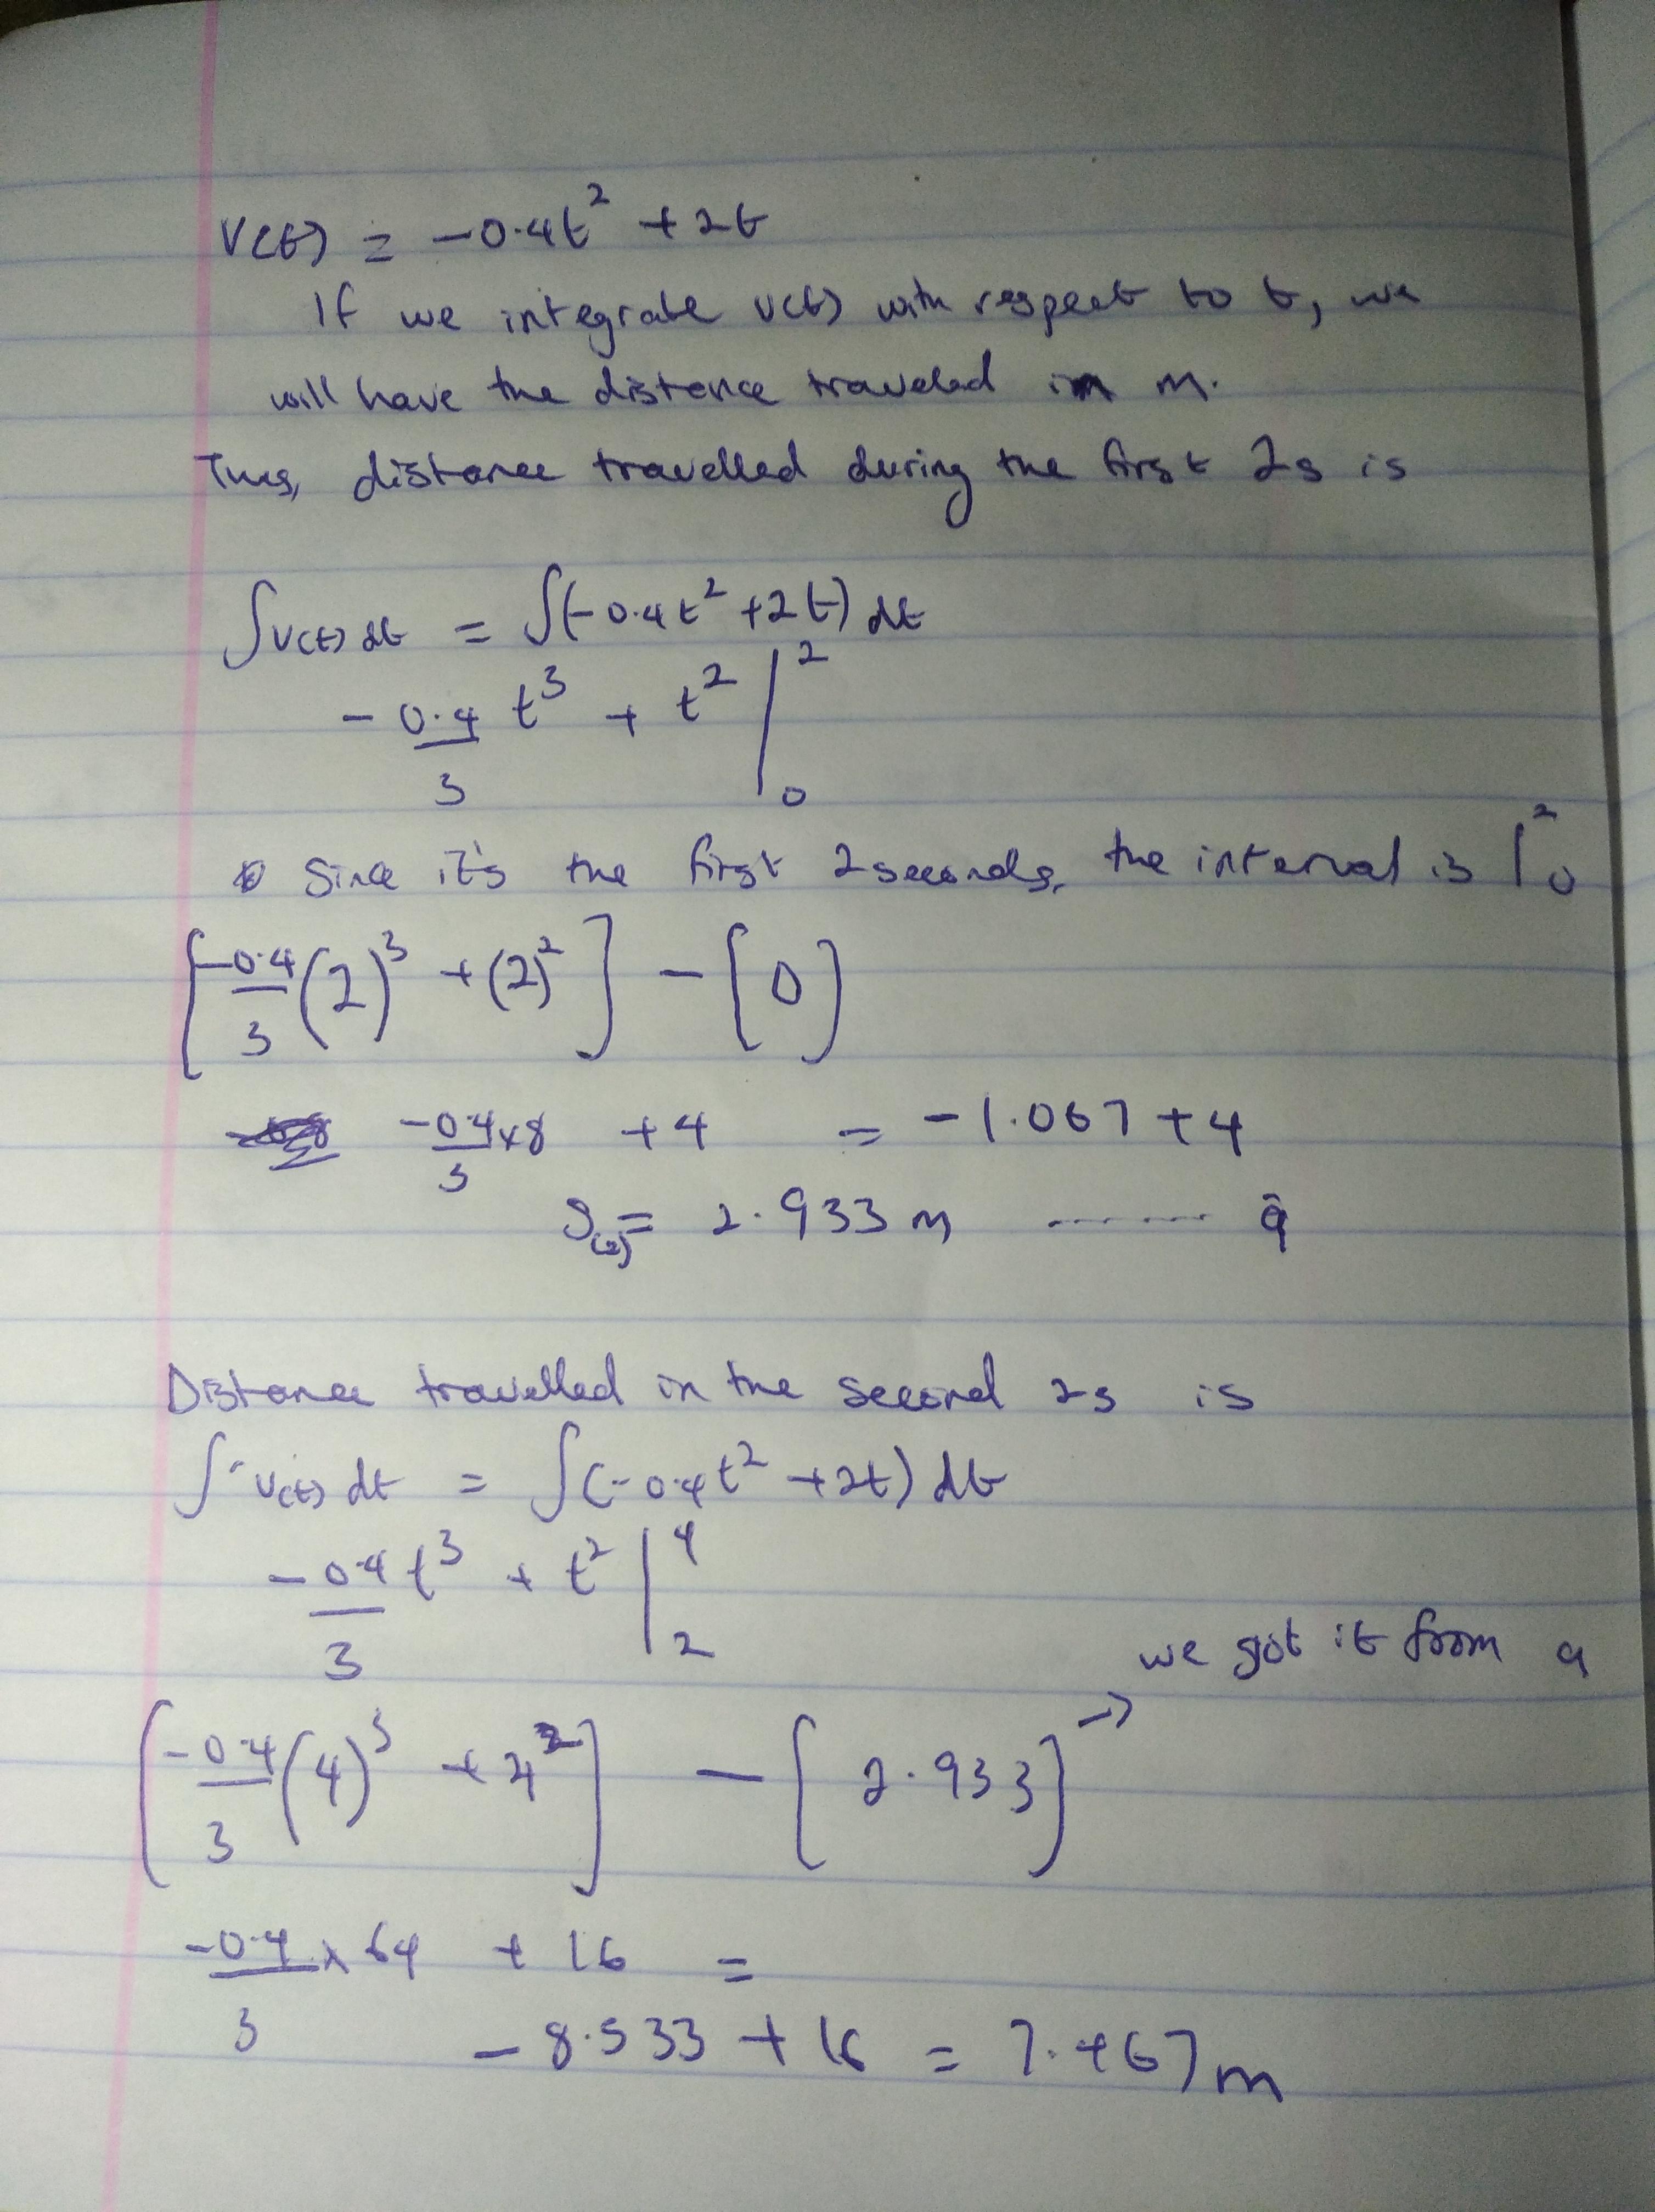 V(t) = -0.4t² + 2t
If we integrate v(t) with respect to t, we
will have the distance traveled in m.
Thus, distance travelled during the first 2s is
∫v(t) dt = ∫(-0.4t² + 2t) dt
-0.4/3 t³ + t² |₀²
Since it's the first 2 seconds, the interval is |₀²
[-0.4/3 (2)³ + (2)²] - [0]
-0.4/3 x 8 + 4 = -1.067 + 4
S(2) = 2.933 m ........ a
Distance travelled in the second 2s is
∫v(t) dt = ∫(-0.4t² + 2t) dt
-0.4/3 t³ + t² |₂⁴
we got it from a
[-0.4/3 (4)³ + 4²] - [2.933] →
-0.4/3 x 64 + 16 =
-8.533 + 16 = 7.467 m